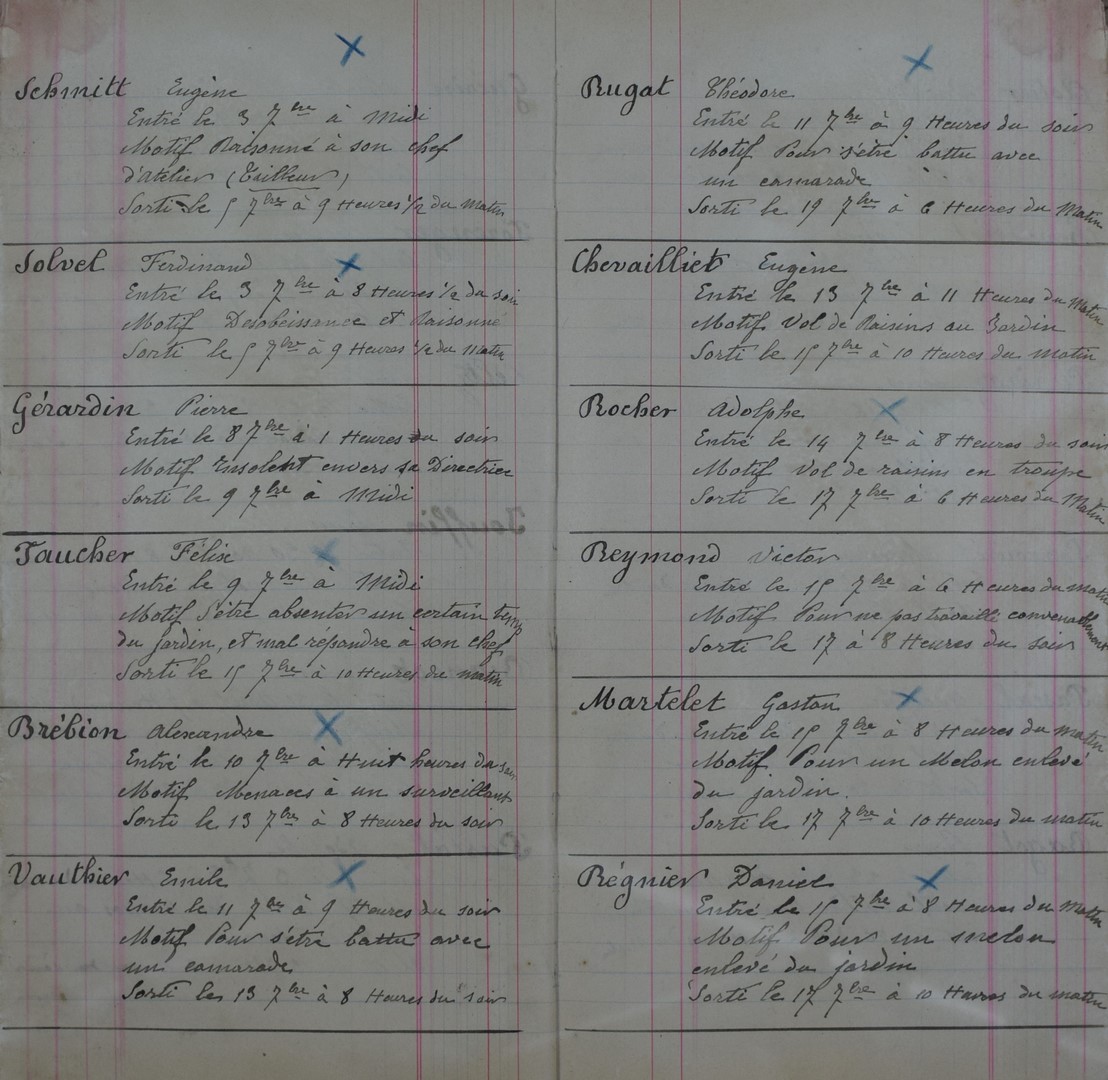 Schmitt Eugène
Entré le 3 7bre à Midi
Motif Raisonné à son chef
d'atelier (Tailleur)
Sorti le 5 7bre à 9 Heures 1/2 du matin
Solvel Ferdinand
Entré le 3 7bre à 8 Heures 1/2 du soir
Motif Desobeissance et Raisonné
Sorti le 5 7bre à 9 Heures 1/2 du Matin
Gérardin Pierre
Entré le 8 7bre à 1 Heures du soir
Motif Insolent envers sa Directrice
Sorti le 9 7bre à Midi
Faucher Félix
Entré le 9 7bre à Midi
Motif S'être absenter un certain temps
du jardin, et mal répondre à son chef
Sorti le 15 7bre à 10 Heures du matin
Brébion Alexandre
Entré le 10 7bre à Huit heures du soir
Motif Menaces à un surveillant
Sorti le 13 7bre à 8 Heures du soir
Vauthier Emile
Entré le 11 7bre à 9 Heures du soir
Motif Pour s'être battu avec
un camarade
Sorti les 13 7bre à 8 Heures du soir
Rugat Théodore
Entré le 11 7bre à 9 Heures du soir
Motif Pour s'être battu avec
un camarade
Sorti le 19 7bre à 6 Heures du Matin
Chevailliet Eugène
Entré le 13 7bre à 11 Heures du Matin
Motif Vol de Raisins au Jardin
Sorti le 15 7bre à 10 Heures du matin
Rocher Adolphe
Entré le 14 7bre à 8 Heures du soir
Motif Vol de raisins en troupe
Sorti le 17 7bre à 6 Heures du Matin
Reymond Victor
Entré le 15 7bre à 6 Heures du matin
Motif Pour ne pas travaillé convenablement
Sorti le 17 à 8 Heures du soir
Martelet Gaston
Entré le 15 7bre à 8 Heures du matin
Motif Pour un Melon enlevé
du jardin.
Sorti le 17 7bre à 10 Heures du matin
Régnier Daniel
Entré le 15 7bre à 8 Heures du Matin
Motif Pour un melon
enlevé du jardin
Sorti le 17 7bre à 10 Heures du matin